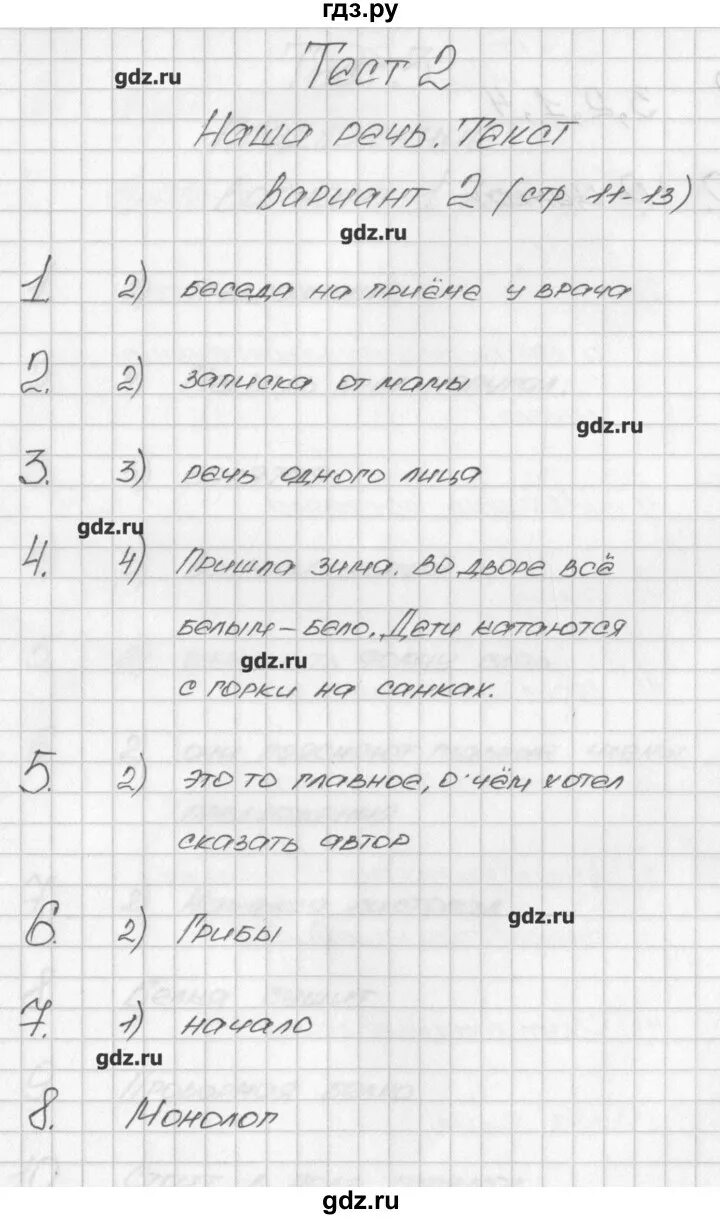 гдз.ру
Тест 2
gdz.ru
Наша речь. Текст
Вариант 2 (стр 11-13)
gdz.ru
1 2) беседа на приёме у врача
2. 2) записка от мамы
gdz.ru
3. 3) речь одного лица
gdz.ru
4. 4) Пришла зима. Во дворе всё
белым-бело. Дети катаются
gdz.ru
с горки на санках.
5. 2) это то главное, о чём хотел
сказать автор
gdz.ru
6. 2) Грибы
7. 1) начало
gdz.ru
8. Монолог
gdz.ru